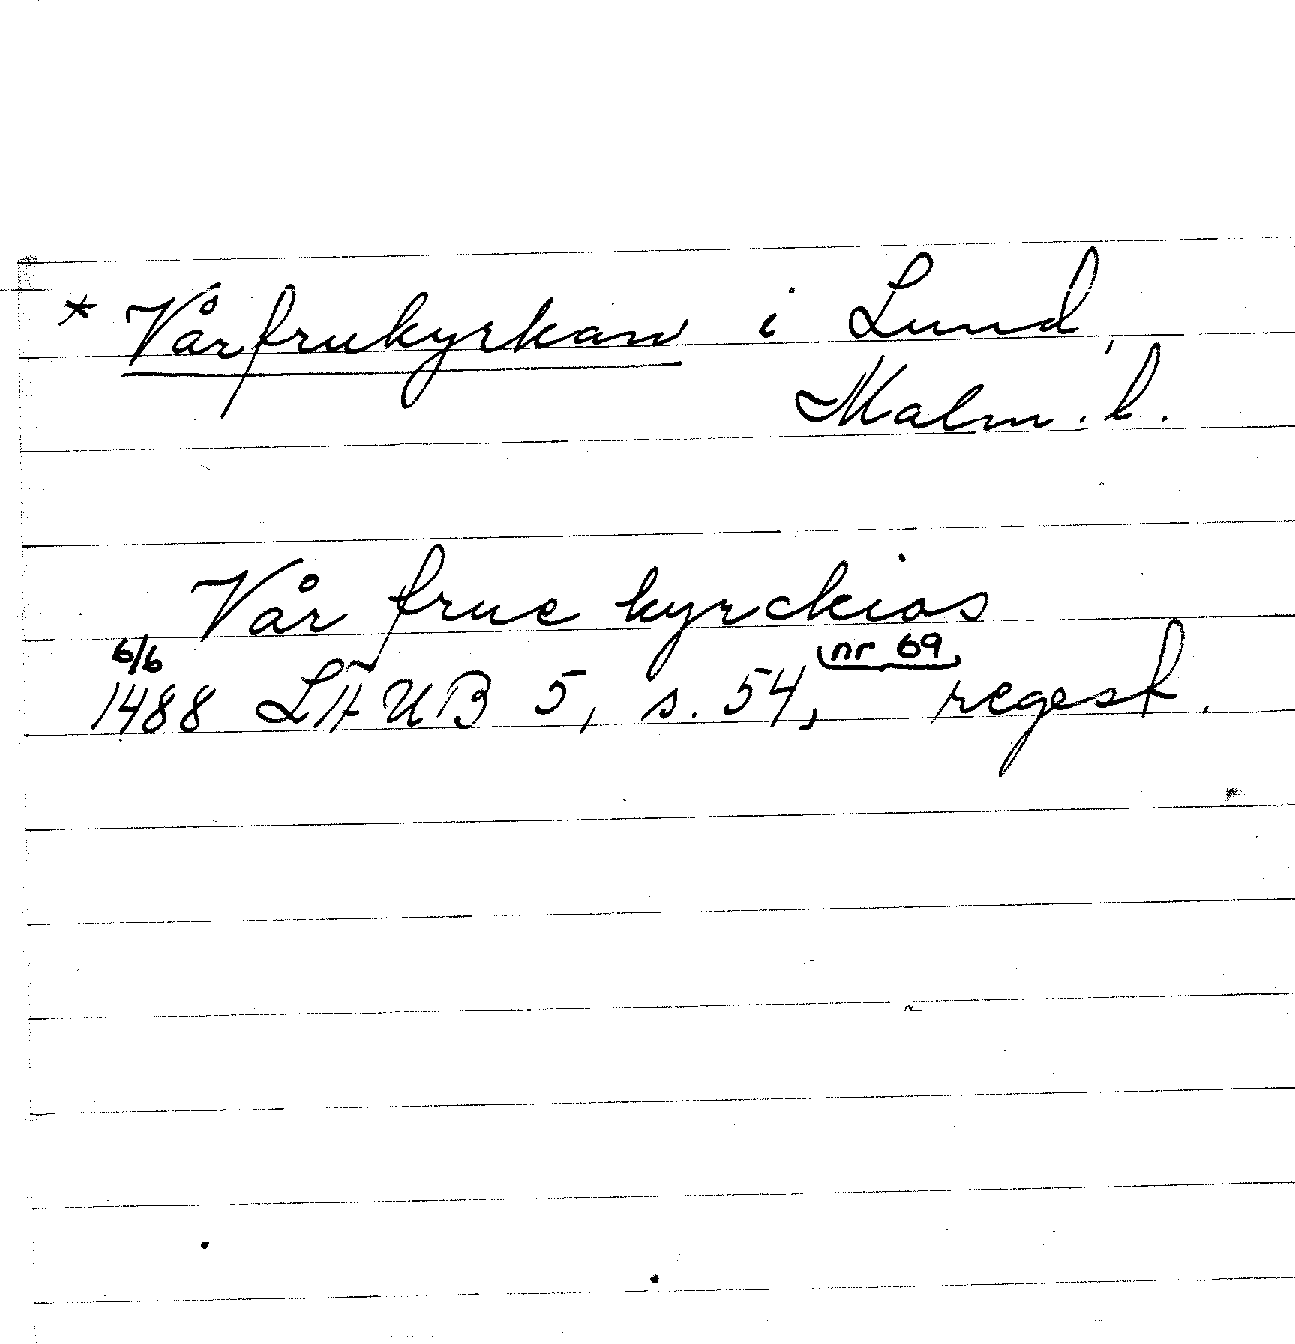 * Vårfrukyrkan i Lund,
Malm. l.
Vår frue kyrckios
6/6
1488 LÄUB 5, s. 54, nr 69, regest.